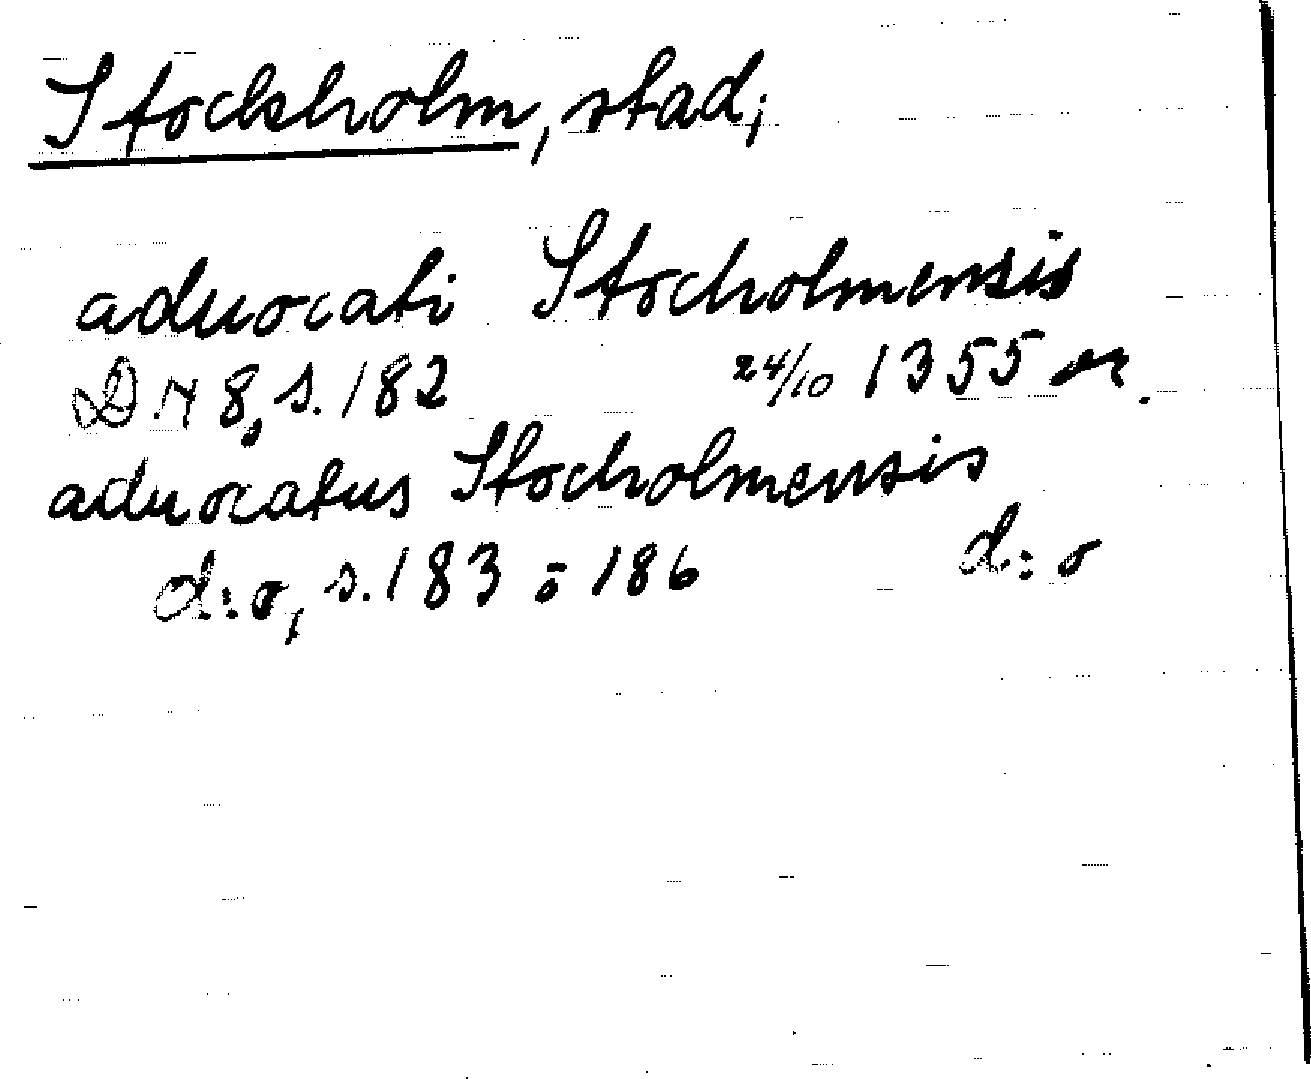 Stockholm, stad;
aduocati Stocholmensis
DN 8, s. 182 24/10 1355 or.
aduocatus Stocholmensis
d:o, s. 183 o 186 d:o